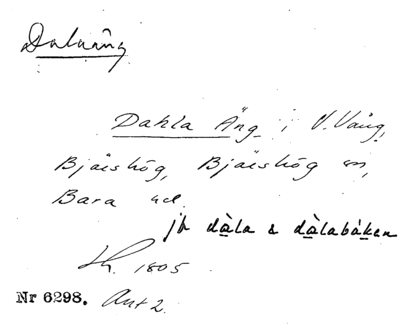 Dalaäng
Dahla Äng i V. Vång,
Bjäishög, Bjäishög sn,
Bara hd.
jfr dàla & dàlabáken
Lh. 1805
Nr 6298. Ant 2.